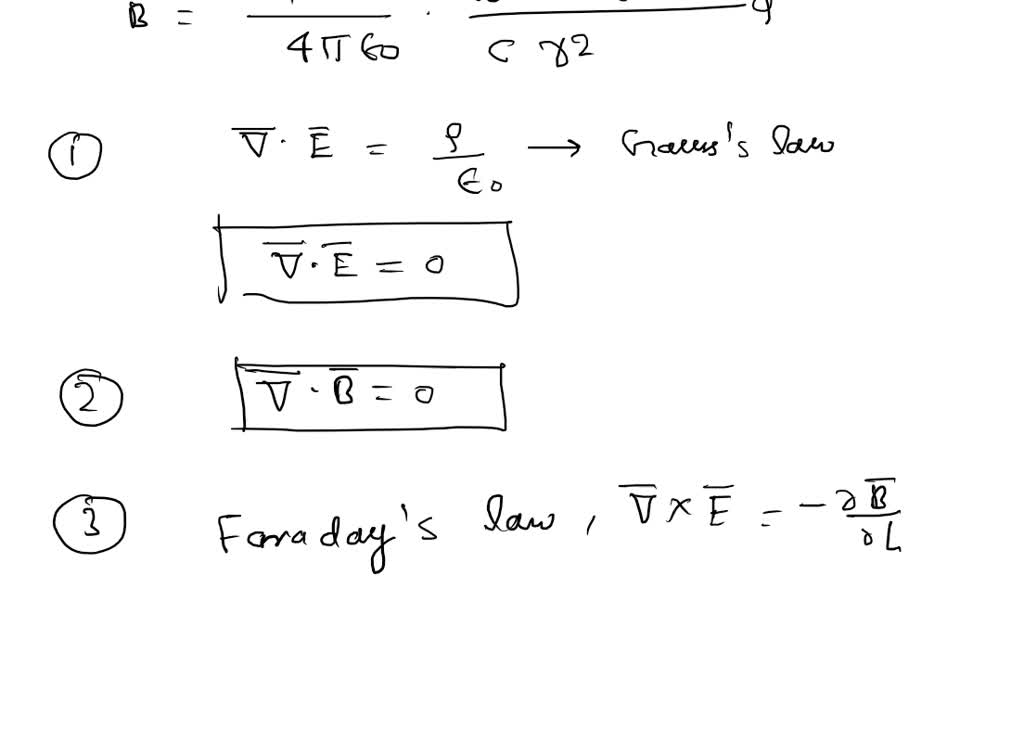 B = ——— · ——— φ
4π ϵ0 c r2
① ∇̅ · E̅ = ρ/ϵ0 → Gauss's law
∇̅ · E̅ = 0
② ∇̅ · B̅ = 0
③ Faraday's law, ∇̅ × E̅ = -∂B̅/∂t